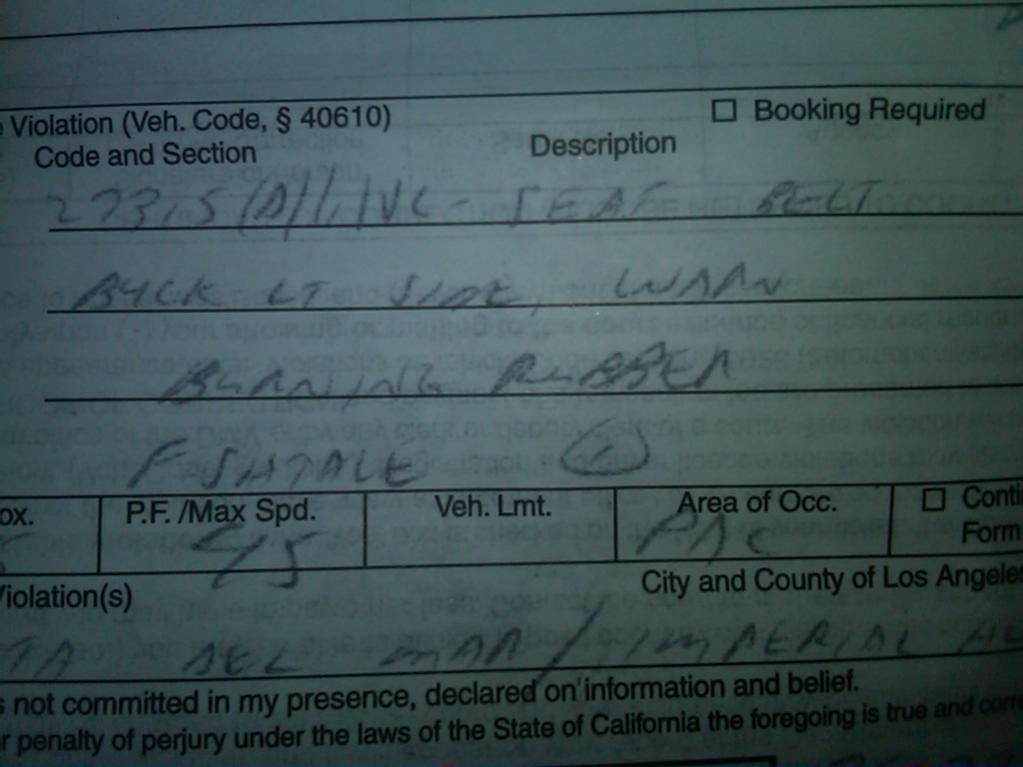 e Violation (Veh. Code, § 40610) ☐ Booking Required
Code and Section Description
SEAT BELT
BACK LT SIDE, WARN
BURNING RUBBER
ox. P.F. /Max Spd. Veh. Lmt. Area of Occ. ☐ Conti
Form
45 PAC
Violation(s) City and County of Los Angeles
TA DEL MAR / IMPERIAL
s not committed in my presence, declared on information and belief.
r penalty of perjury under the laws of the State of California the foregoing is true and corre